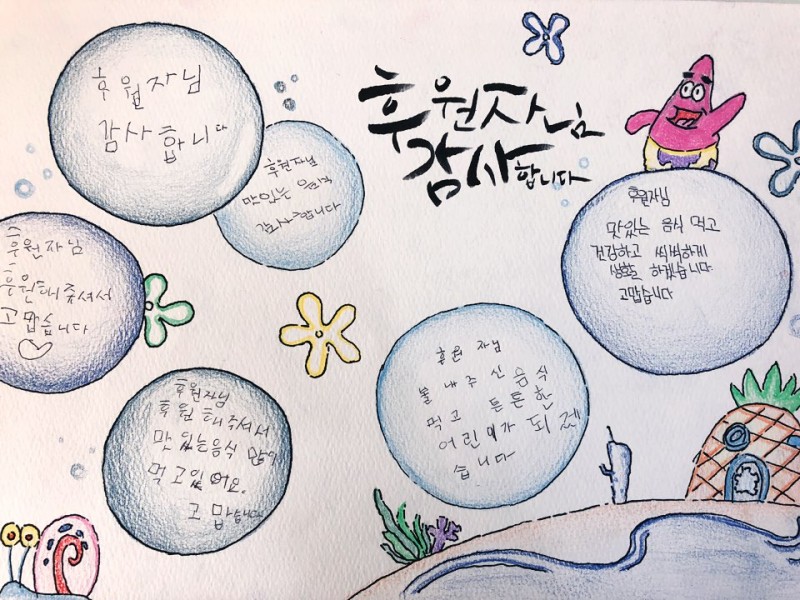 후원자님
감사합니다
후원자님
감사합니다
후원자님
맛있는 음식
감사합니다
후원자님
맛있는 음식 먹고
건강하고 씩씩하게
생활 하겠습니다
고맙습니다
후원자님
후원해주셔서
고맙습니다
후원 자님
보내주신 음식
먹고 튼튼한
어린이가 되겠
습니다
후원자님
후원해주셔서
맛있는음식 많이
먹고있어요.
고맙습니다